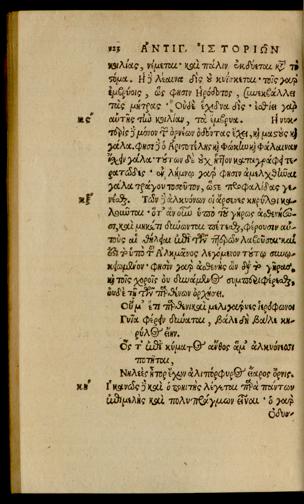 ΑΝΤΙΓ. ΙΣΤΟΡΙΩΝ
κοιλίας, νέμεται· καὶ πάλιν ἐκδύεται κατὰ τὸ
στόμα. Ἡ δὲ λέαινα δὶς οὐ κυΐσκεται· τοῖς γὰρ
ἐμβρύοις, ὥς φησιν Ἡρόδοτος, συνεκβάλλει
τὰς μήτρας· Οὐδὲ ἔχιδνα δίς· ἐσθίει γὰρ
αὐτῆς τὴν κοιλίαν, τὰ ἔμβρυα. Ἡ νυκ-
τερὶς δὲ μόνον τῶν ὀρνέων ὀδόντας ἔχει, καὶ μαστοὺς καὶ
γάλα. φησὶ δὲ ὁ Ἀριστοτέλης καὶ φώκην καὶ φάλαιναν
ἔχειν γάλα· τούτων δὲ οὐχ ἧττον καταγράφει τε-
ρατῶδες· ἐν Λήμνῳ γάρ φησιν ἀμελχθῆναι
γάλα τράγον τοσοῦτον, ὥστε τροφαλίδας γε-
νέσθαι. Τῶν δὲ ἀλκυόνων οἱ ἄρσενες κηρύλοι κα-
λοῦνται· ὅταν οὖν ὑπὸ τοῦ γήρως ἀσθενήσω-
σι, καὶ μηκέτι δύνωνται πέτεσθαι, φέρουσιν αὐ-
τοὺς αἱ θήλειαι ἐπὶ τῶν πτερῶν λαβοῦσαι· καὶ
ἔστι τὸ ὑπὸ τοῦ Ἀλκμᾶνος λεγόμενον τούτῳ συνῳ-
κειωμένον· φησὶν γὰρ ἀσθενὴς ὢν διὰ τὸ γῆρας,
καὶ τοῖς χοροῖς οὐ δυνάμενος συμπεριφέρεσθαι,
οὐδὲ τῇ τῶν παρθένων ὀρχήσει.
Οὔ μ' ἔτι παρθενικαὶ μελιγάρυες ἱερόφωνοι
Γυῖα φέρειν δύναται, βάλε δὴ βάλε κη-
ρύλος εἴην.
Ὅς τ' ἐπὶ κύματος ἄνθος ἅμ' ἀλκυόνεσσι
ποτῆται,
Νηλεὲς ἦτορ ἔχων ἁλιπόρφυρος εἴαρος ὄρνις.
κη Ἱκανῶς δὲ καὶ ὁ λέγεται παρὰ πάντων
ἐπιμελὴς καὶ πολυπράγμων εἶναι· ὁ γὰρ
Ὀδυσ-